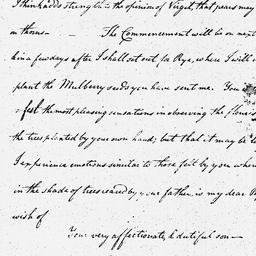 I think adds strength to the opinion of Virgil, that pears may
on thorns — The Commencement will be on next
kin a few days after I shall set out for Rye, where I will
plant the Mulberry seeds you have sent me. You
feel the most pleasing sensations in observing the flouris
the trees planted by your own hand; but that it may be
I experience emotions similar to those felt by you when
in the shade of trees reared by your father, is my dear
wish of
Your very affectionate, & dutiful son —